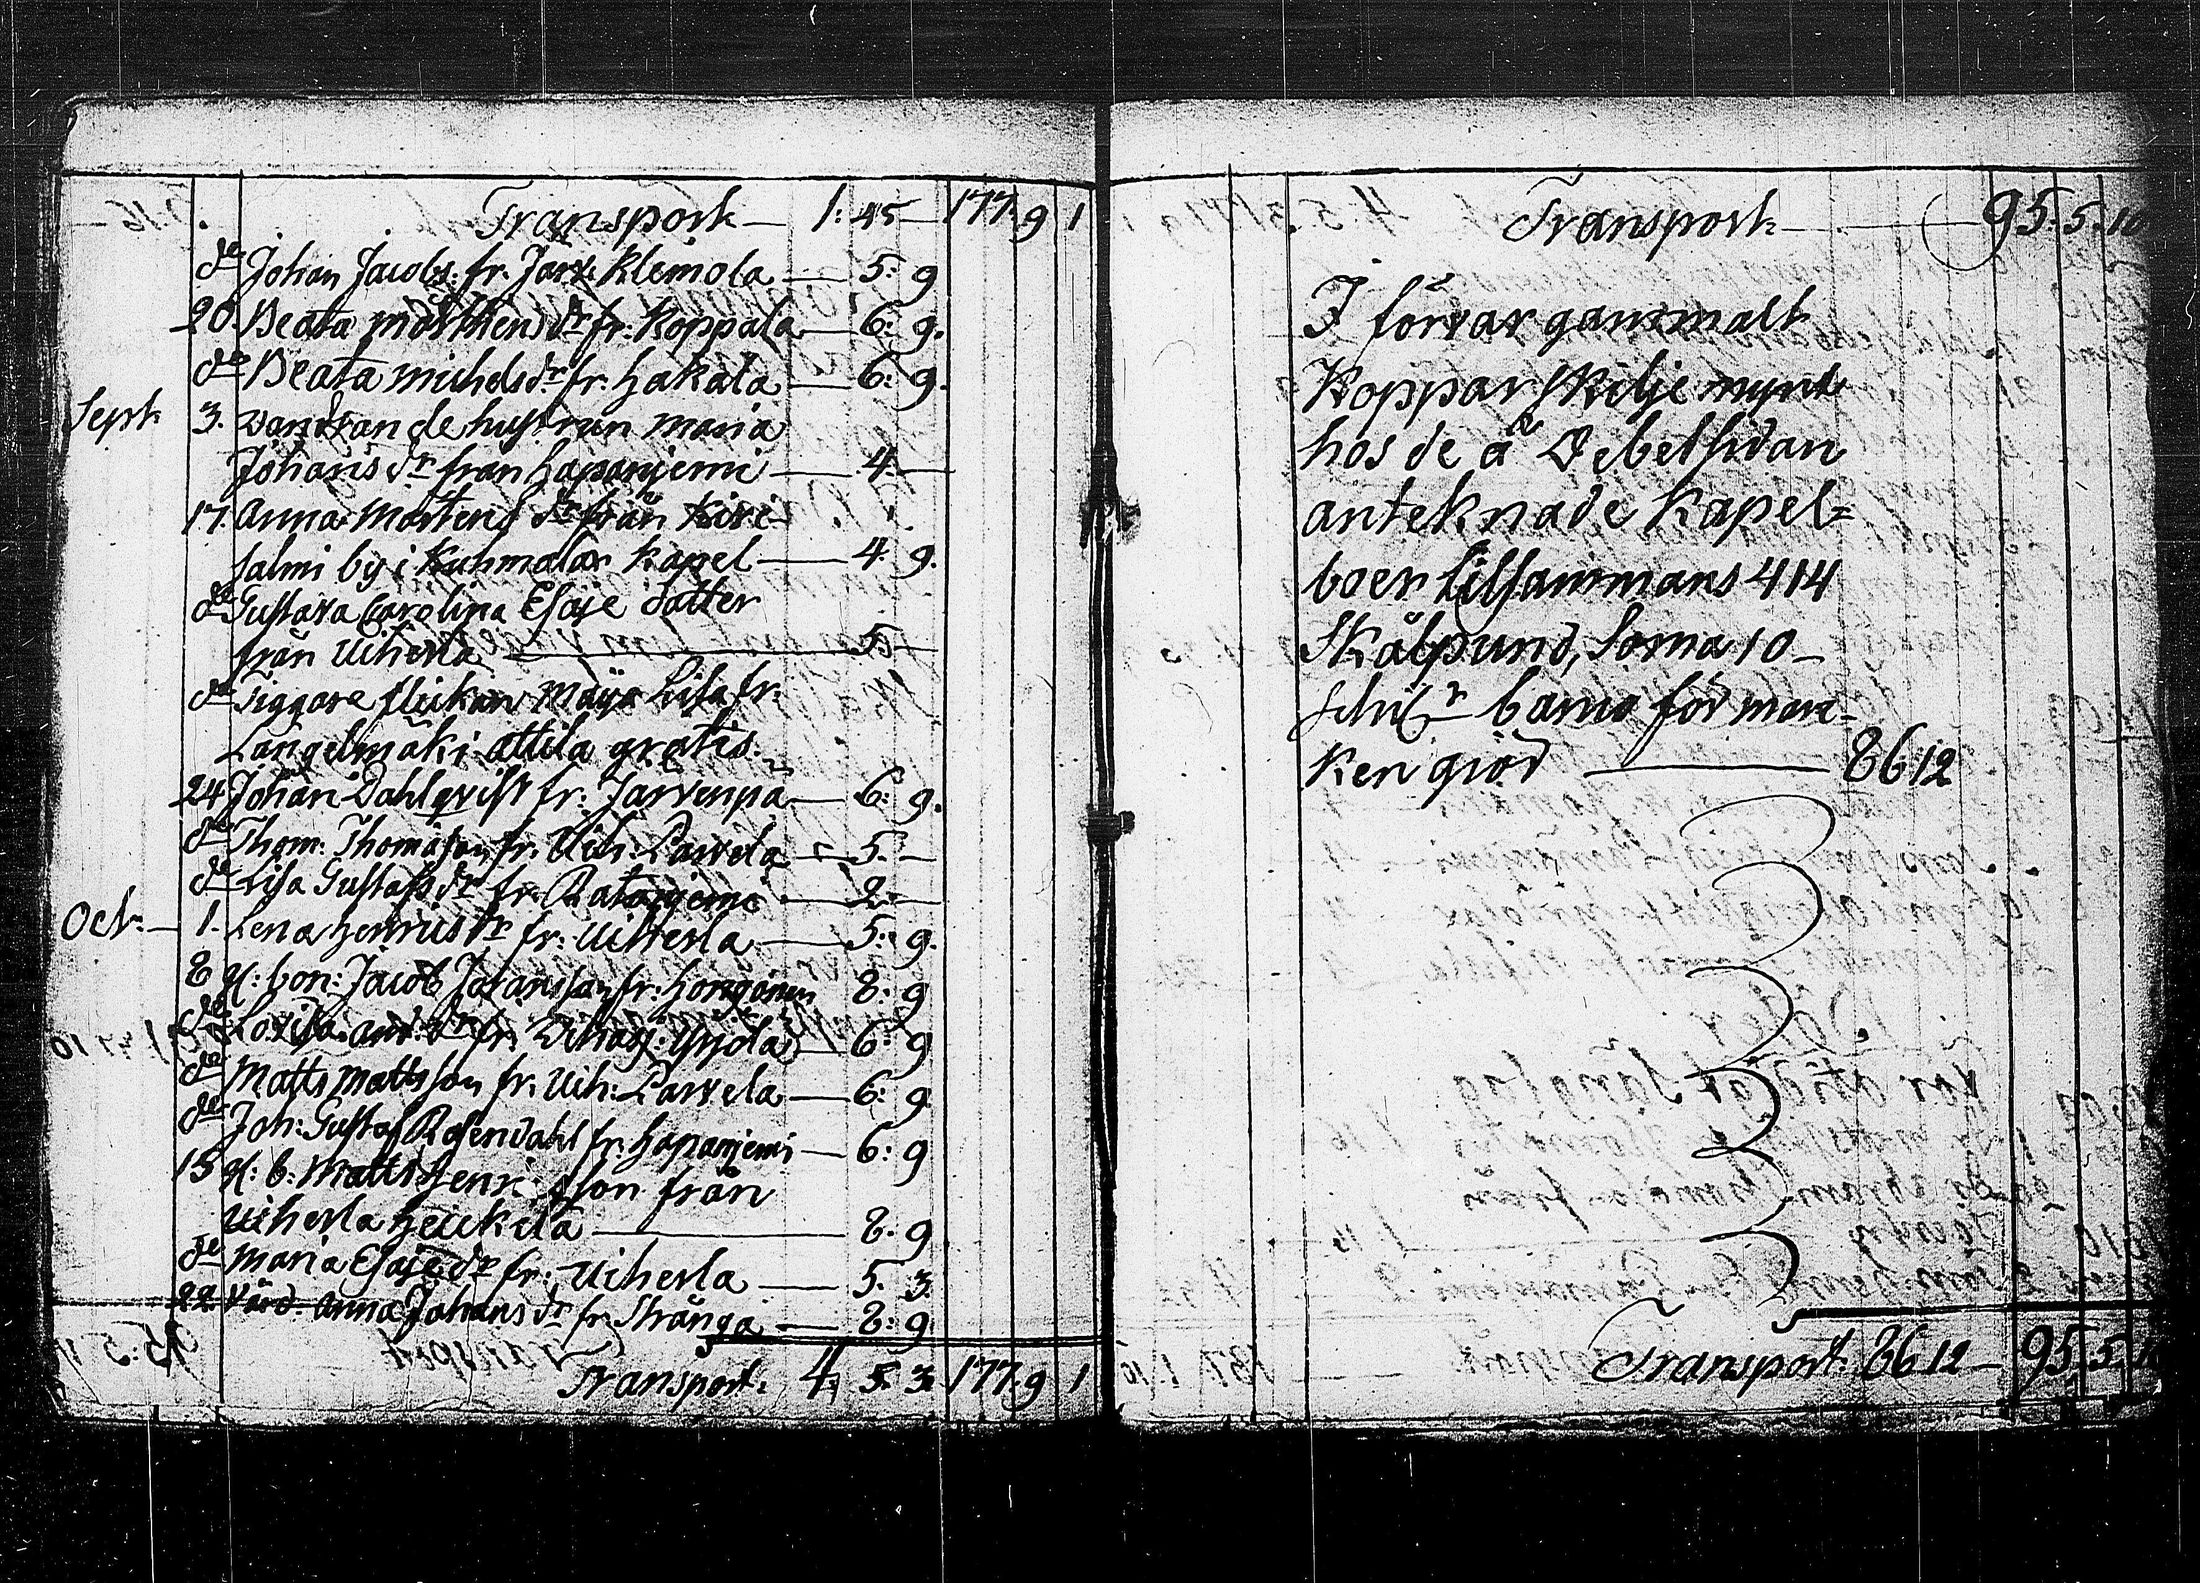 Transport — 1: 45 — 177. 9 1
de Johan Jacobs: fr. Jarv: Klemola — 5: 9
20. Beata Mårthens dr fr: Koppala — 6: 9.
de Beata Michels dr fr. Hakala — 6: 9.
Sept 3. Vandrande hustrun Maria
Johans dr från Hapanjemi — 4 —
17. Anna Mårtens dr från Kivi-
salmi by i Kuhmalax Kapel — 4. 9.
de Gustava Carolina Esaje dotter
från Uiherla — 5 —
de Tiggare flickan Maija Lisa fr.
Längelmäki Attila gratis.
24 Johan Dahlqvist fr: Jarvenpä — 6: 9.
de Thom: Thomasson fr. Uih: Parvela — 5. —
de Lisa Gustafs dr fr. Ratanjemi — 2. —
Oct. — 1. Lena Henrics dr fr: Uiherla — 5: 9.
8 gl: bon: Jacob Johansson fr: 8: 9
de Lovisa And: dr fr. Yrjola — 6: 9
de Matts Mattsson fr. Uih: Parvela — 6: 9
de Joh: Gustaf Rosendahl fr. Hapanjemi — 6: 9
15 gl: b: Matts Henricsson från
Uiherla Heickelä — 8. 9
de Maria Esaje dr fr: Uiherla — 5. 3.
22 Värd: Anna Johans dr fr. Stränga — 8: 9
Transport: 4: 5. 3. 177. 9 1
Transport — 95. 5. 10
I förvar gammalt
Koppar Skilje mynt
hos de å Debet sidan
anteknade Kapel=
boer tilsammans 414
Skålpund, Soma 10 —
banco för mar-
ken giör — 86 12
Transport: 86 12 — 95 5.